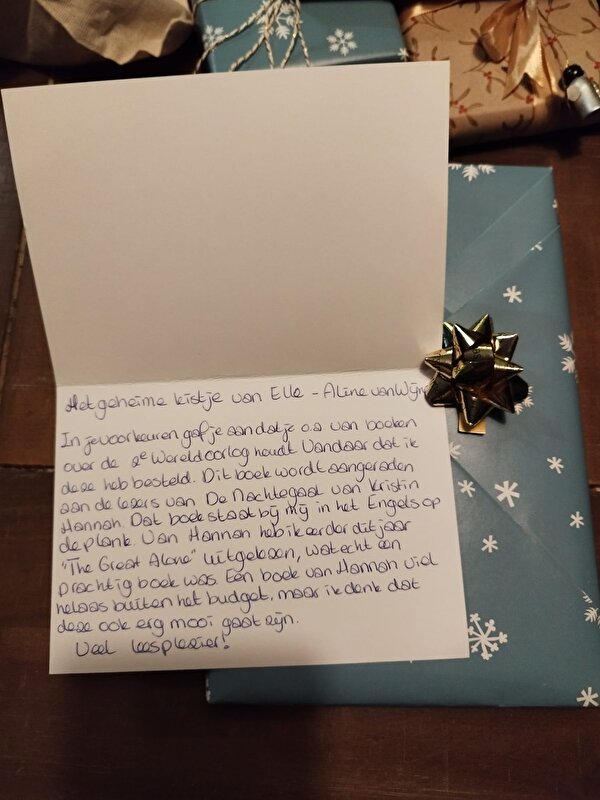 Het geheime kistje van Elle - Aline van Wijn
In je voorkeuren gaf je aan dat je o.a van boeken
over de 2e Wereldoorlog houdt. Vandaar dat ik
deze heb besteld. Dit boek wordt aangeraden
aan de lezers van De Nachtegaal van Kristin
Hannah. Dat boek staat bij mij in het Engels op
de plank. Van Hannah heb ik eerder dit jaar
"The Great Alone" uitgelezen, wat echt een
prachtig boek was. Een boek van Hannah viel
helaas buiten het budget, maar ik denk dat
deze ook erg mooi gaat zijn.
Veel leesplezier!